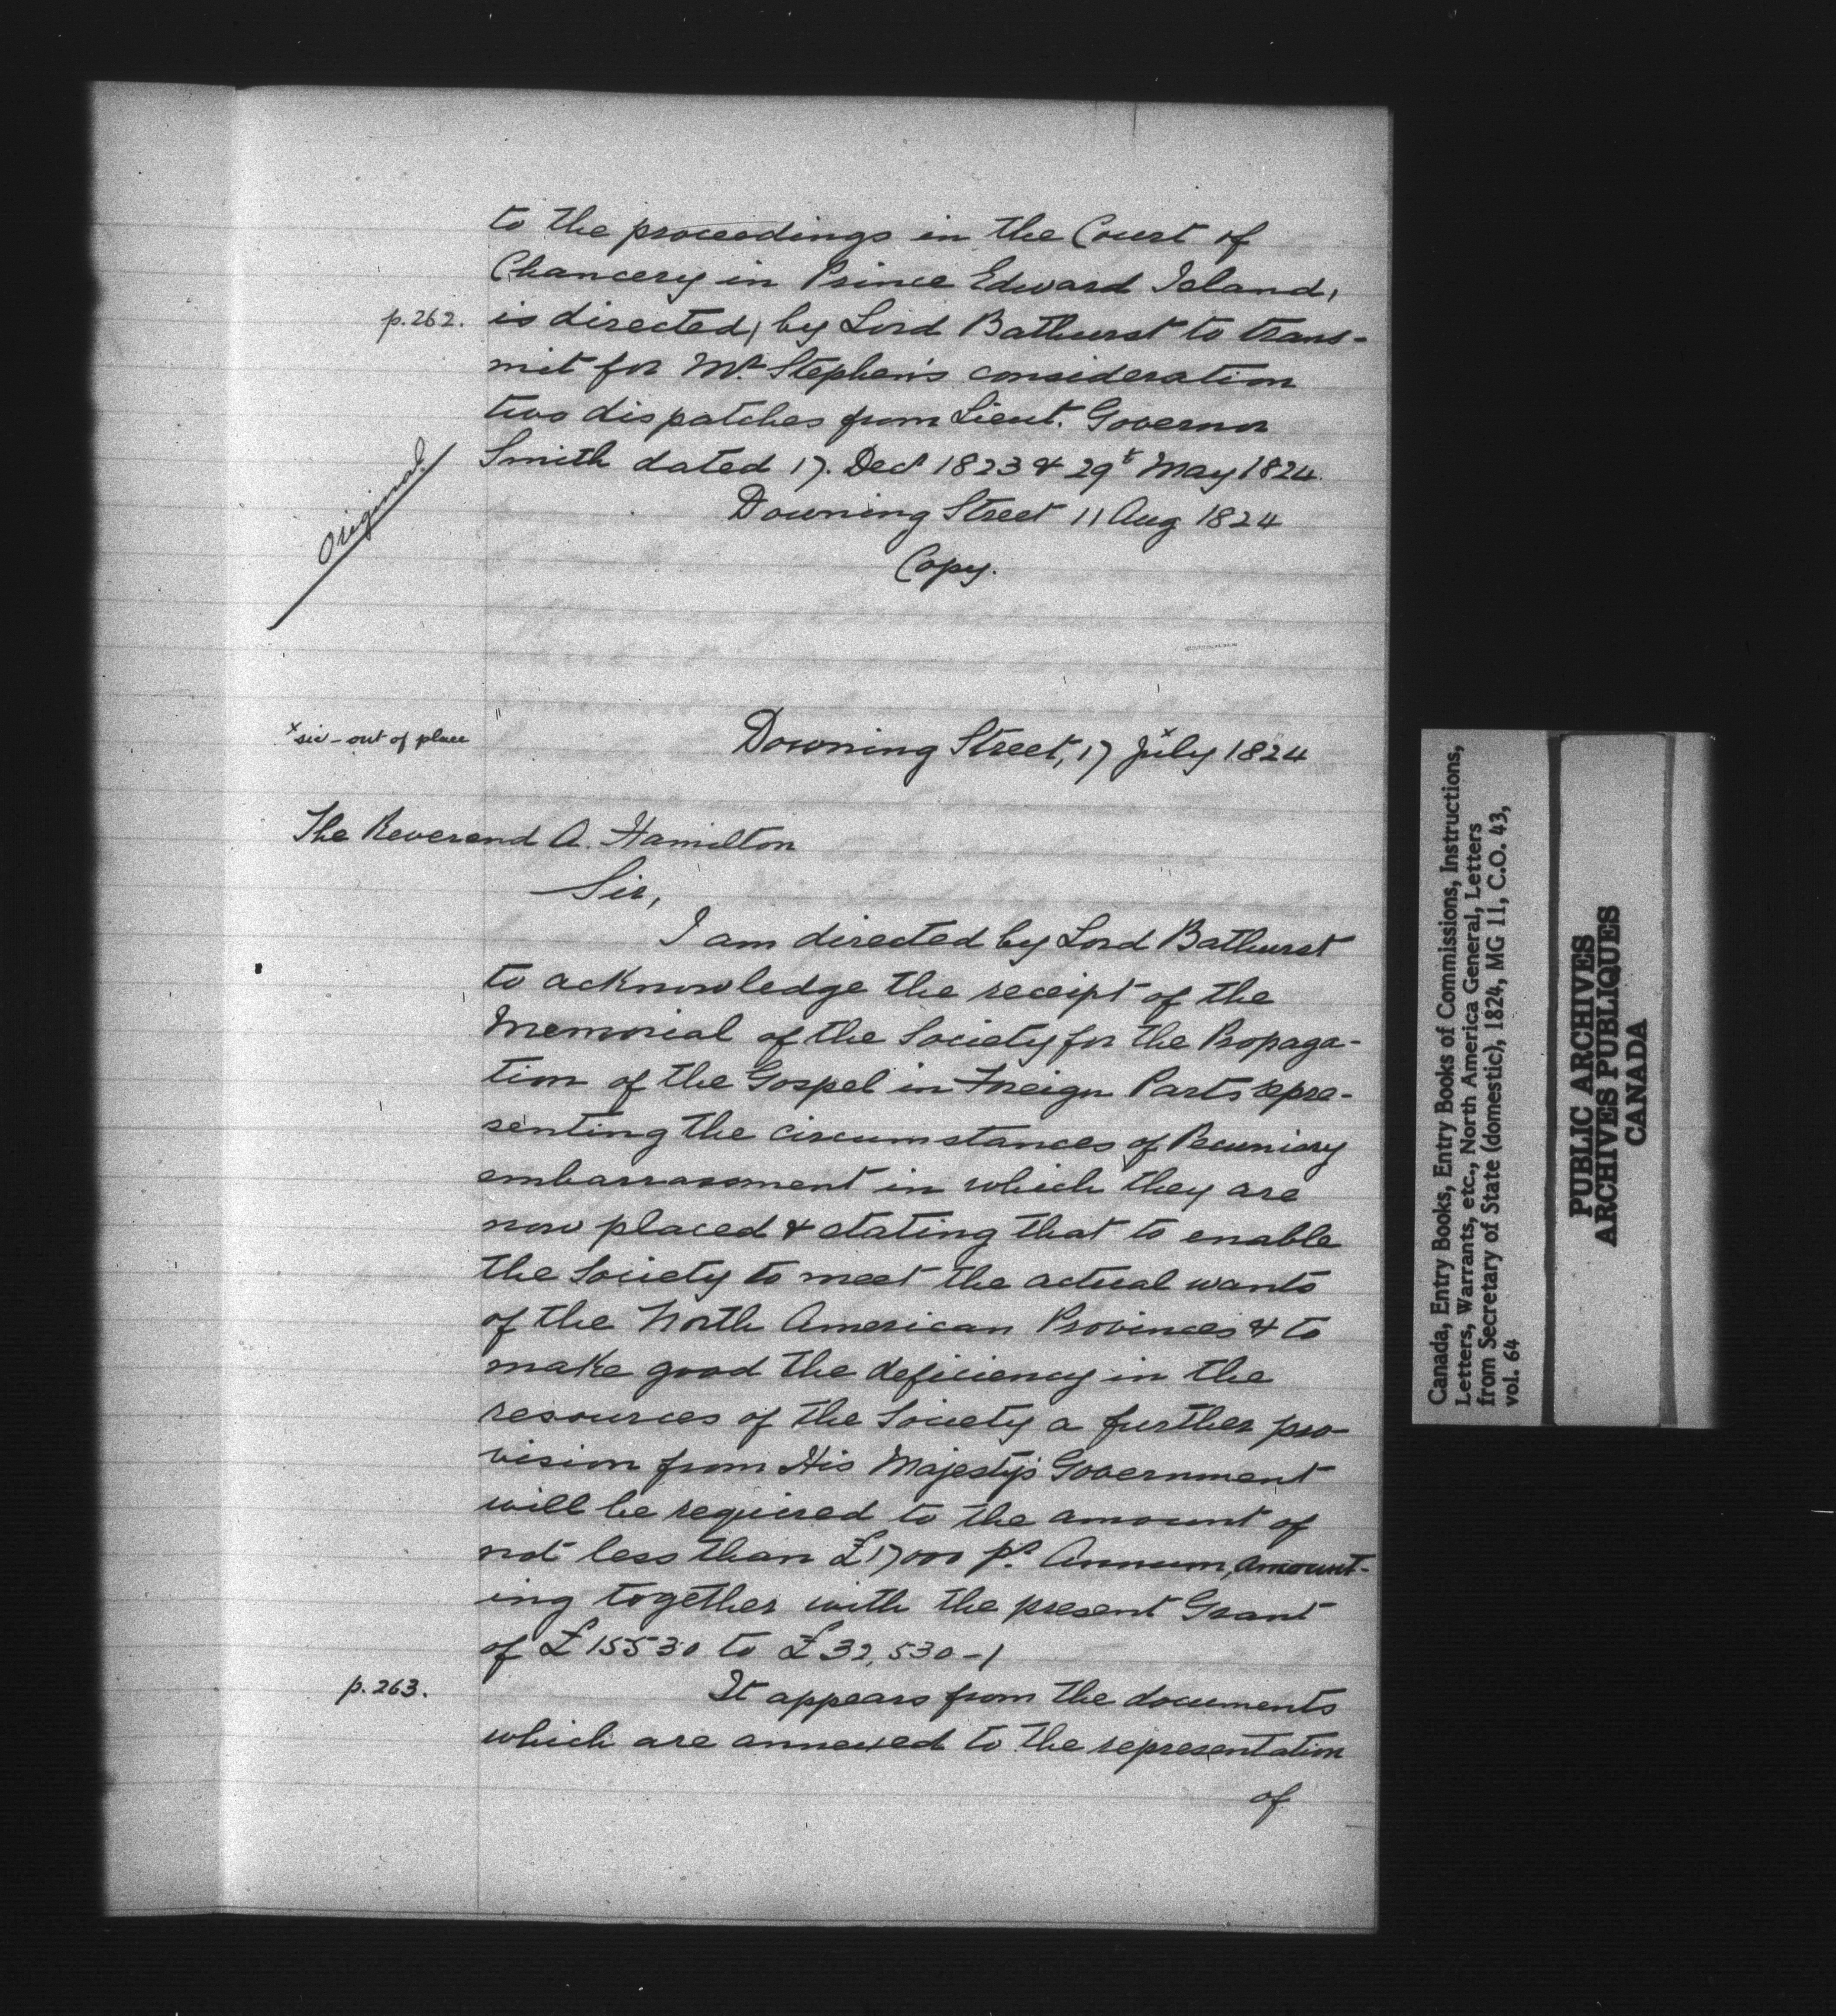 to the proceedings in the Court of
Chancery in Prince Edward Island,
p.262. is directed, by Lord Bathurst to trans-
mit for Mr. Stephen's consideration
two dispatches from Lieut. Governor
Smith dated 17. Decr 1823 & 29t May 1824.
Original.
Downing Street 11 Aug 1824
Copy.
x sic - out of place
Downing Street, 17 July x 1824
The Reverend A. Hamilton
Sir,
I am directed by Lord Bathurst
to acknowledge the receipt of the
Memorial of the Society for the Propaga-
tion of the Gospel in Foreign Parts repre-
senting the circumstances of Pecuniary
embarrassment in which they are
now placed & stating that to enable
the Society to meet the actual wants
of the North American Provinces & to
make good the deficiency in the
resources of the Society a further pro-
vision from His Majesty's Government
will be required to the amount of
not less than £17000 pr. Annum, amount-
ing together with the present Grant
of £15530 to £32,530-/
p.263. It appears from the documents
which are annexed to the representation
of
Canada, Entry Books, Entry Books of Commissions, Instructions,
Letters, Warrants, etc., North America General, Letters
from Secretary of State (domestic), 1824, MG 11, C.O. 43,
vol. 64
PUBLIC ARCHIVES
ARCHIVES PUBLIQUES
CANADA